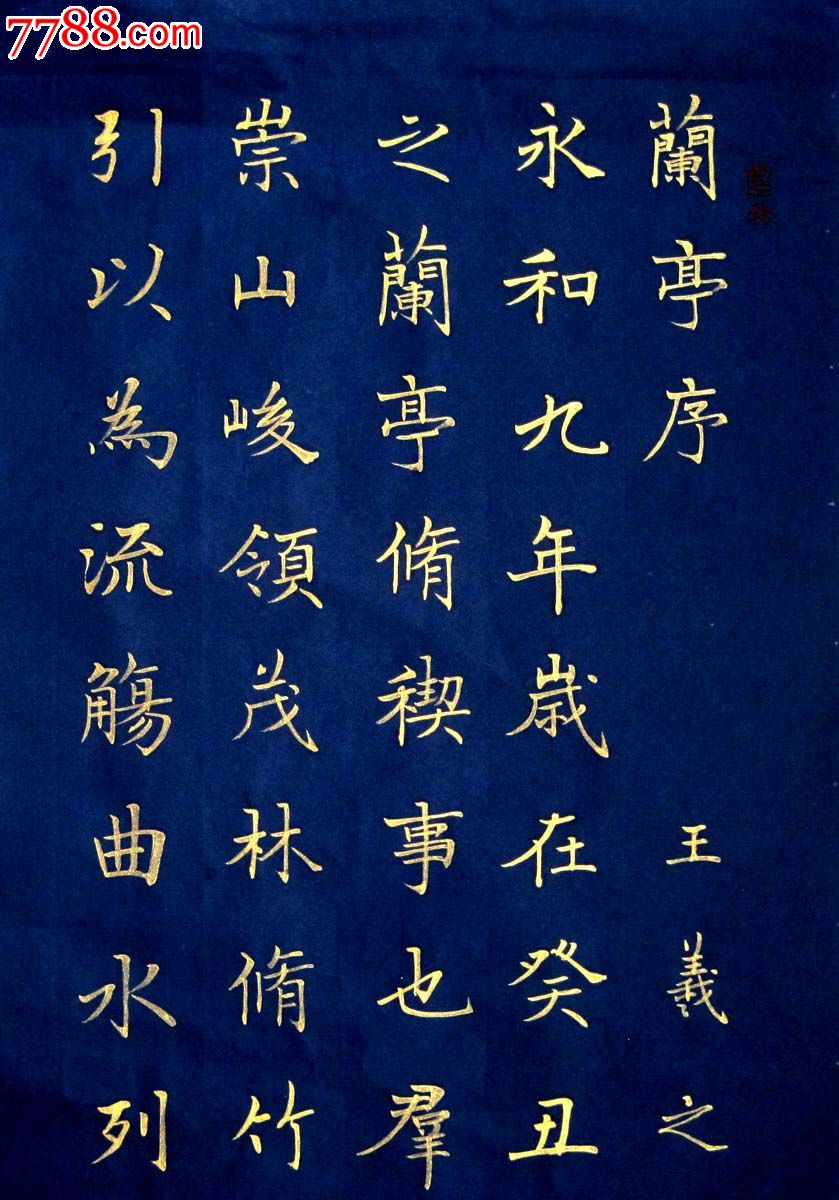 7788.com
蘭亭序 王羲之
永和九年歲在癸丑
之蘭亭脩稧事也羣
崇山峻領茂林脩竹
引以為流觴曲水列